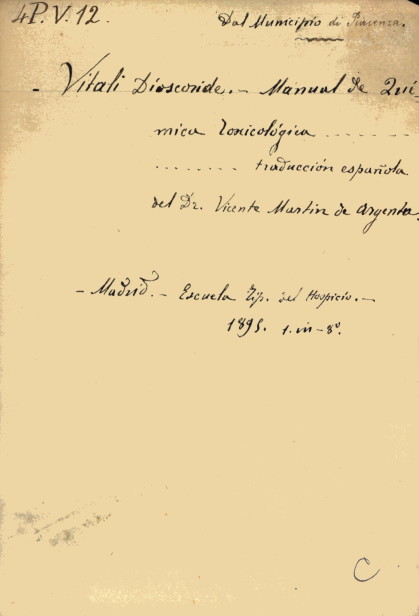 4P.V.12.
Dal Municipio di Piacenza.
- Vitali Dioscoride. - Manual de Quí-
mica Toxicológica ..........
........ traducción española
del Dr. Vicente Martin de Argenta.
- Madrid. - Escuela Tip. del Hospicio. -
1895. 1. in - 8º.
C